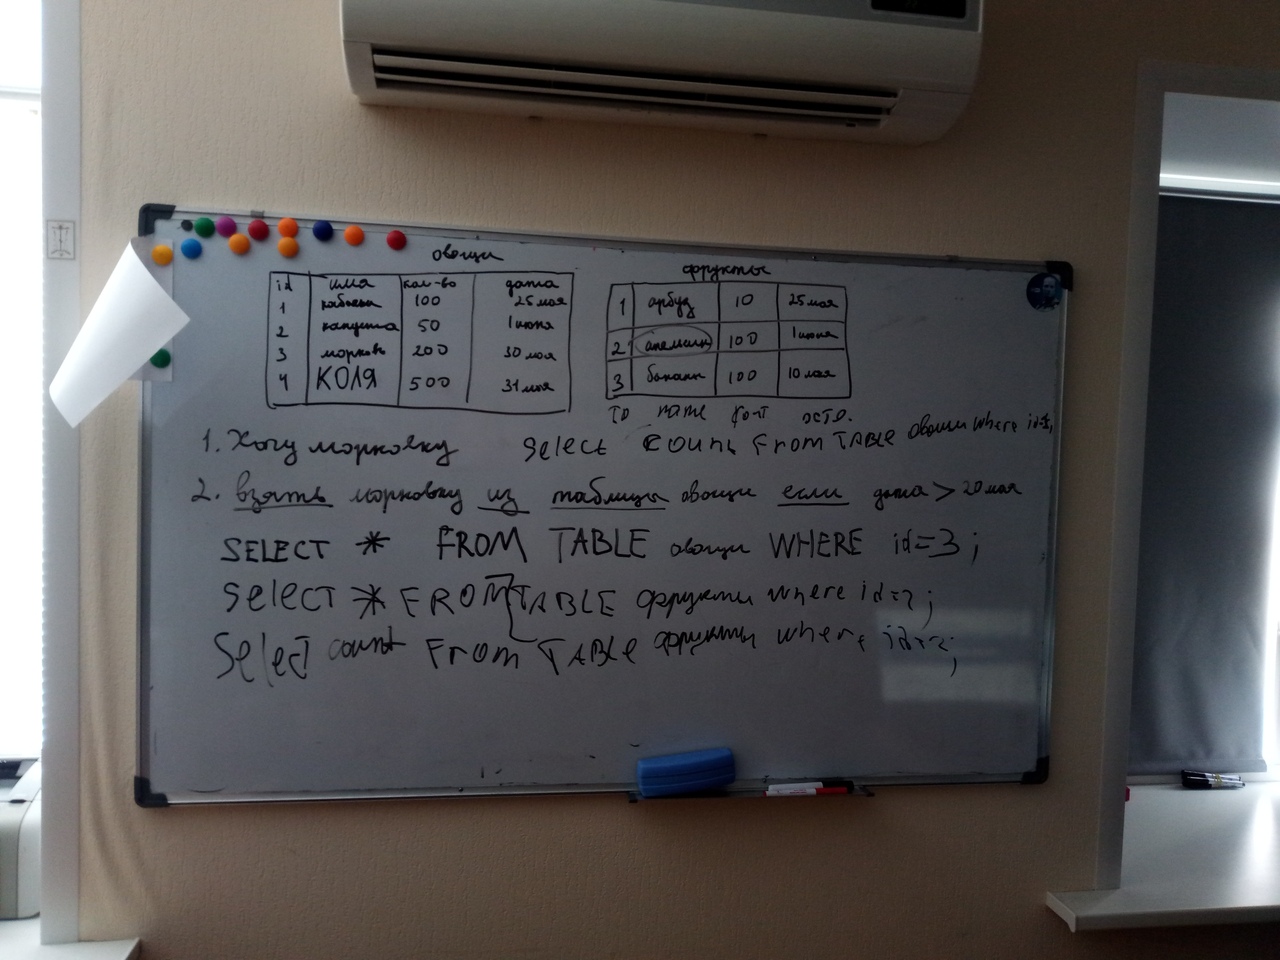 овощи
id имя кол-во дата
1 кабачки 100 25 мая
2 капуста 50 1 июня
3 морковь 200 30 мая
4 КОЛЯ 500 31 мая
фрукты
1 арбуз 10 25 мая
2 апельсин 100 1 июня
3 бананы 100 10 мая
name
1. Хочу морковку
Select count From TABLE овощи where
2. взять морковку из таблицы овощи если дата > 20 мая
SELECT * FROM TABLE овощи WHERE id=3;
Select * FROM TABLE фрукты where id=2;
Select count From TABLE фрукты where id=2;